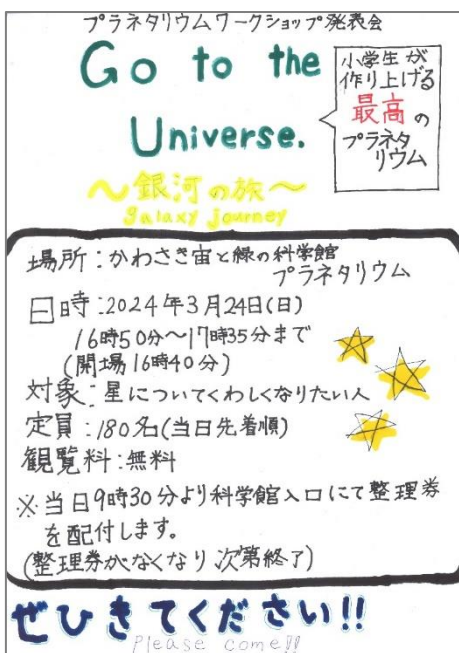 プラネタリウムワークショップ発表会
Go to the
Universe.
小学生が
作り上げる
最高の
プラネタ
リウム
～銀河の旅～
galaxy journey
場所：かわさき宙と緑の科学館
プラネタリウム
日時：2024年3月24日(日)
16時50分～17時35分まで
(開場16時40分)
対象：星についてくわしくなりたい人
定員：180名(当日先着順)
観覧料：無料
※当日9時30分より科学館入口にて整理券
を配付します。
(整理券がなくなり次第終了)
ぜひきてください!!
Please come!!